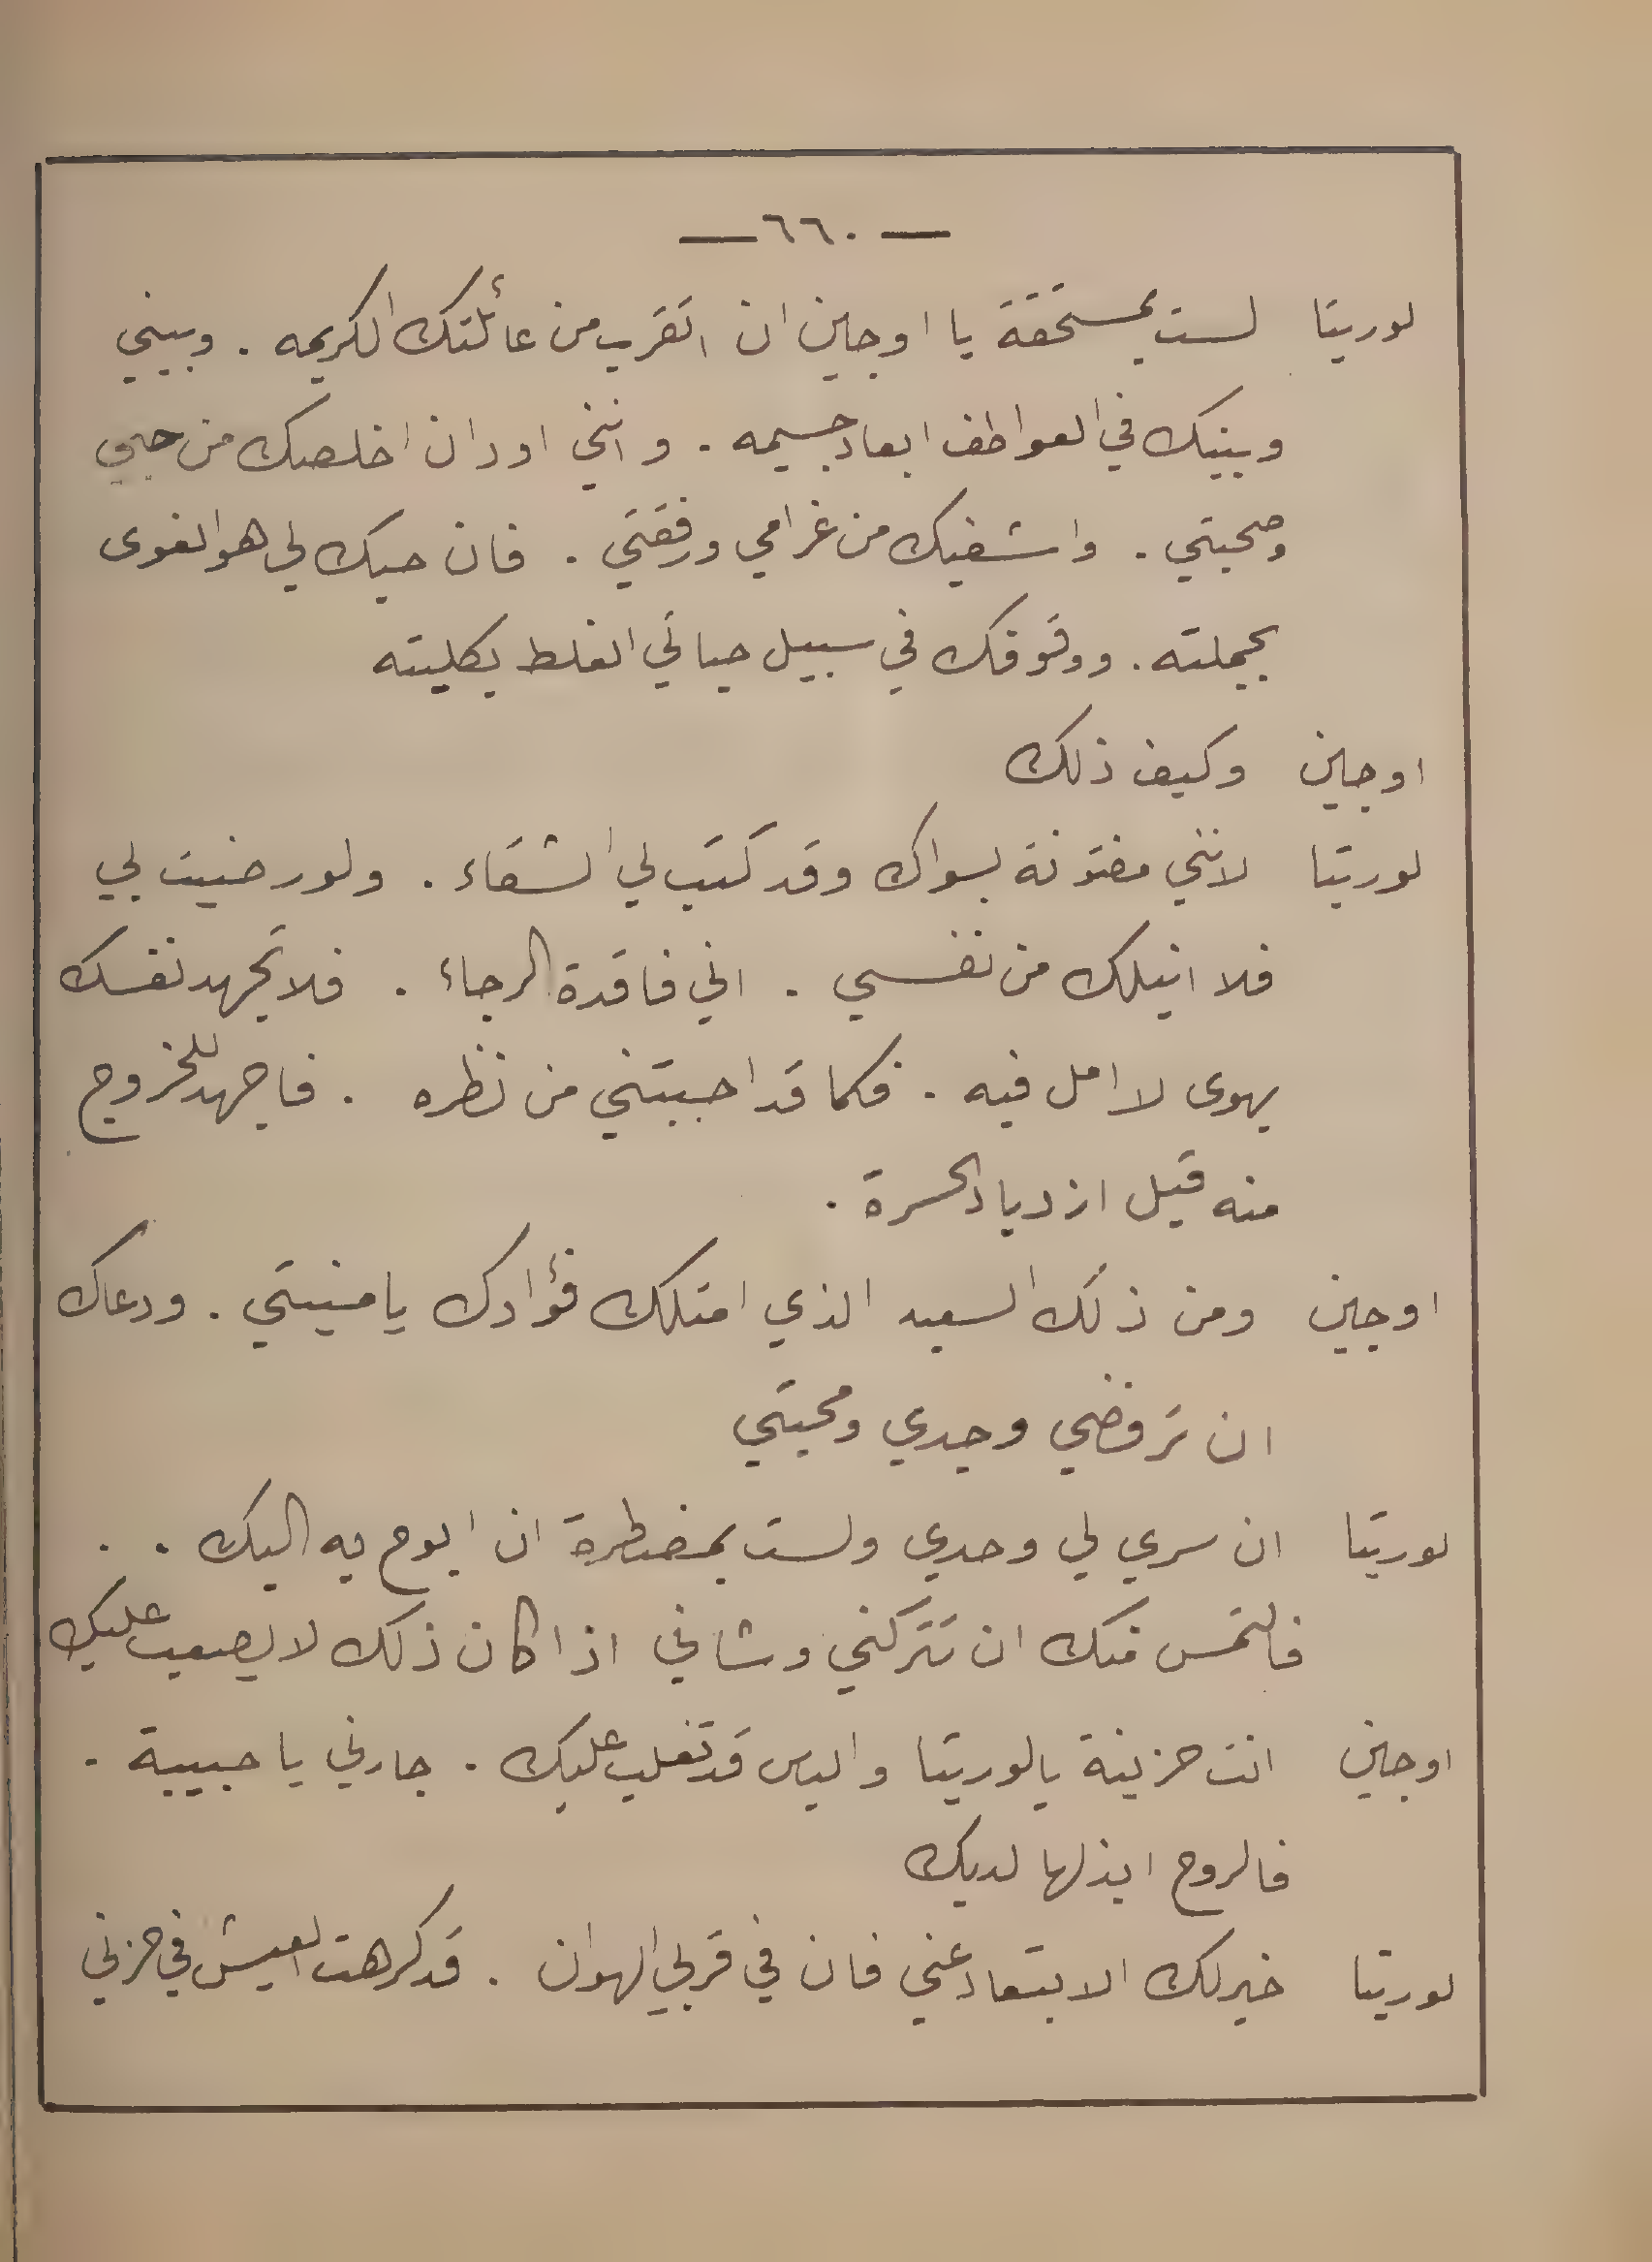 — ٦٦٠ —
لوريتا لست بمستحقة يا اوجين ان اتقرب من عائلتك الكريمه . وبيني
وبينك في العواطف ابعاد جسيمه . وانني اود ان اخلصك من حبي
وصحبتي . واشفيك من غرامي ورفقتي . فان حبك لي هو الغوى
بجملته . ووقوفك في سبيل حياتي الغلط بكليته
اوجين وكيف ذلك
لوريتا لانني مفتونة بسواك وقد كتب لي الشقاء . ولو رضيت بي
فلا انيلك من نفسي . اني فاقدة الرجاء . فلا تجهد نفسك
بهوى لا امل فيه . فكما قد احببتني من نظره . فاجهد للخروج
منه قبل ازدياد الحسرة .
اوجين ومن ذلك السعيد الذي امتلك فؤادك يا منيتي . ودعاك
ان ترفضي وجدي ومحبتي
لوريتا ان سري لي وحدي ولست بمضطرة ان ابوح به اليك . .
فالتمس منك ان تتركني وشاني اذا كان ذلك لا يصعب عليك
اوجين انت حزينة يا لوريتا واليس قد تغلب عليك . جاريني يا حبيبة .
فالروح ابذلها لديك
لوريتا خير لك الابتعاد عني فان في قربي الهوان . قد كرهت العيش في حزني